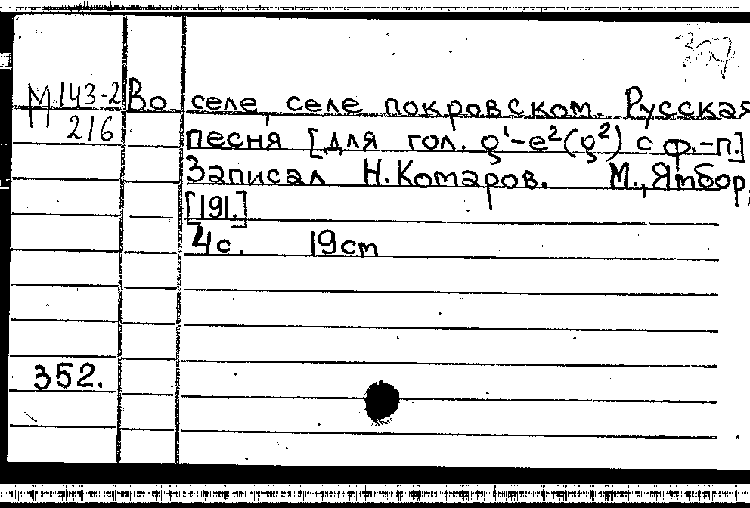 М 143-2
216
Во селе, селе покровском. Русская
песня [для гол. g¹-e²(g²) с ф.-п.]
Записал Н. Комаров. М., Ямбор,
[191.]
4с. 19cm
352.